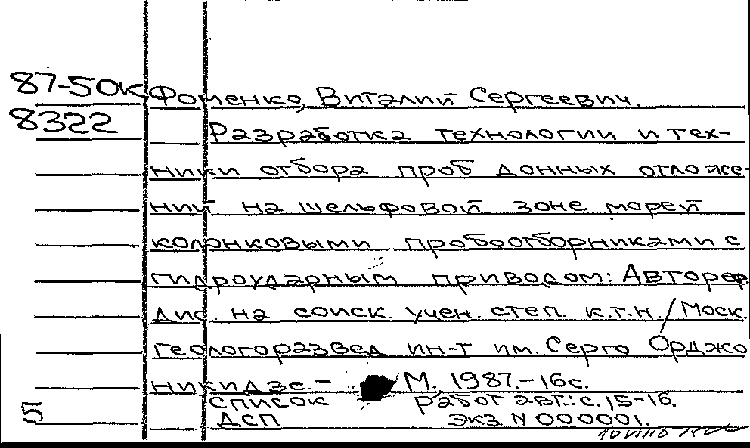 87-50к Фоменко, Виталий Сергеевич.
8322 Разработка технологии и тех-
ники отбора проб донных отложе-
ний на шельфовой зоне морей
колонковыми пробоотборниками с
гидроударным приводом: Автореф
дис. на соиск. учен. степ. к.т.н. / Моск.
геологоразвед ин-т им. Серго Орджо
никидзе - М. 1987.-16с.
5 Список работ авт.: с. 15-16.
ДСП Экз N 000001.